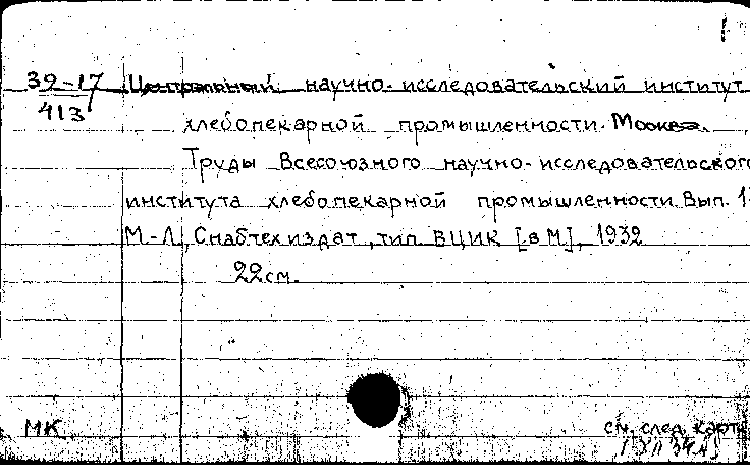 1
39-17 Центральный научно-исследовательский институт
413
хлебопекарной промышленности. Москва.
Труды Всесоюзного научно-исследовательского
института хлебопекарной промышленности. Вып. 1-
М.-Л., Снабтехиздат, тип. ВЦИК [в М], 1932
22см.
МК см. след. карт.